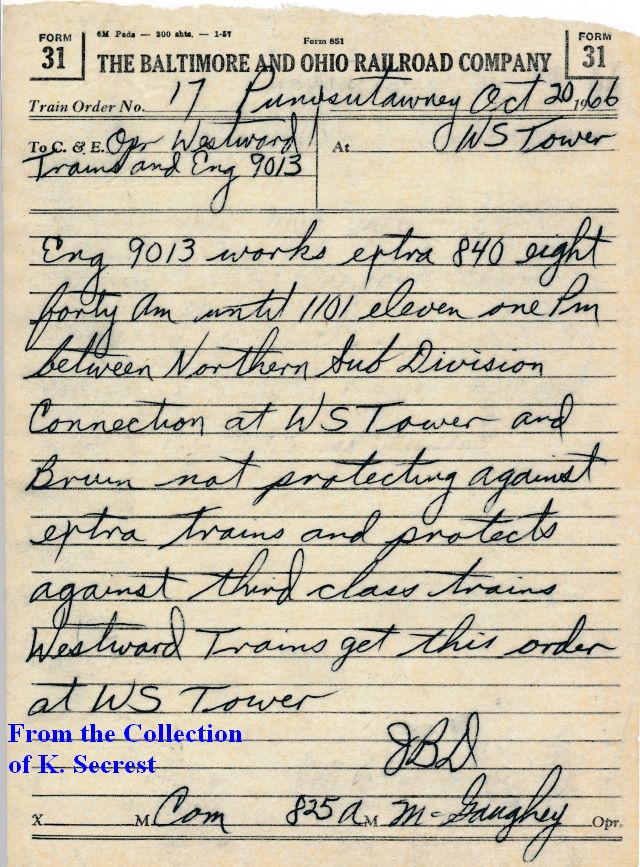 FORM 31
6M Pads — 200 shts. — 1-57
Form 851
FORM 31
THE BALTIMORE AND OHIO RAILROAD COMPANY
Train Order No. 17 Punxsutawney Oct 20, 1966
To C. & E. Opr Westward
Trains and Eng 9013
At WS Tower
Eng 9013 works extra 840 eight
forty Am until 1101 eleven one Pm
between Northern Sub Division
Connection at WS Tower and
Bruin not protecting against
extra trains and protects
against third class trains
Westward Trains get this order
at WS Tower
From the Collection
of K. Secrest
JBD
X M Com 825 A M McGaughey Opr.